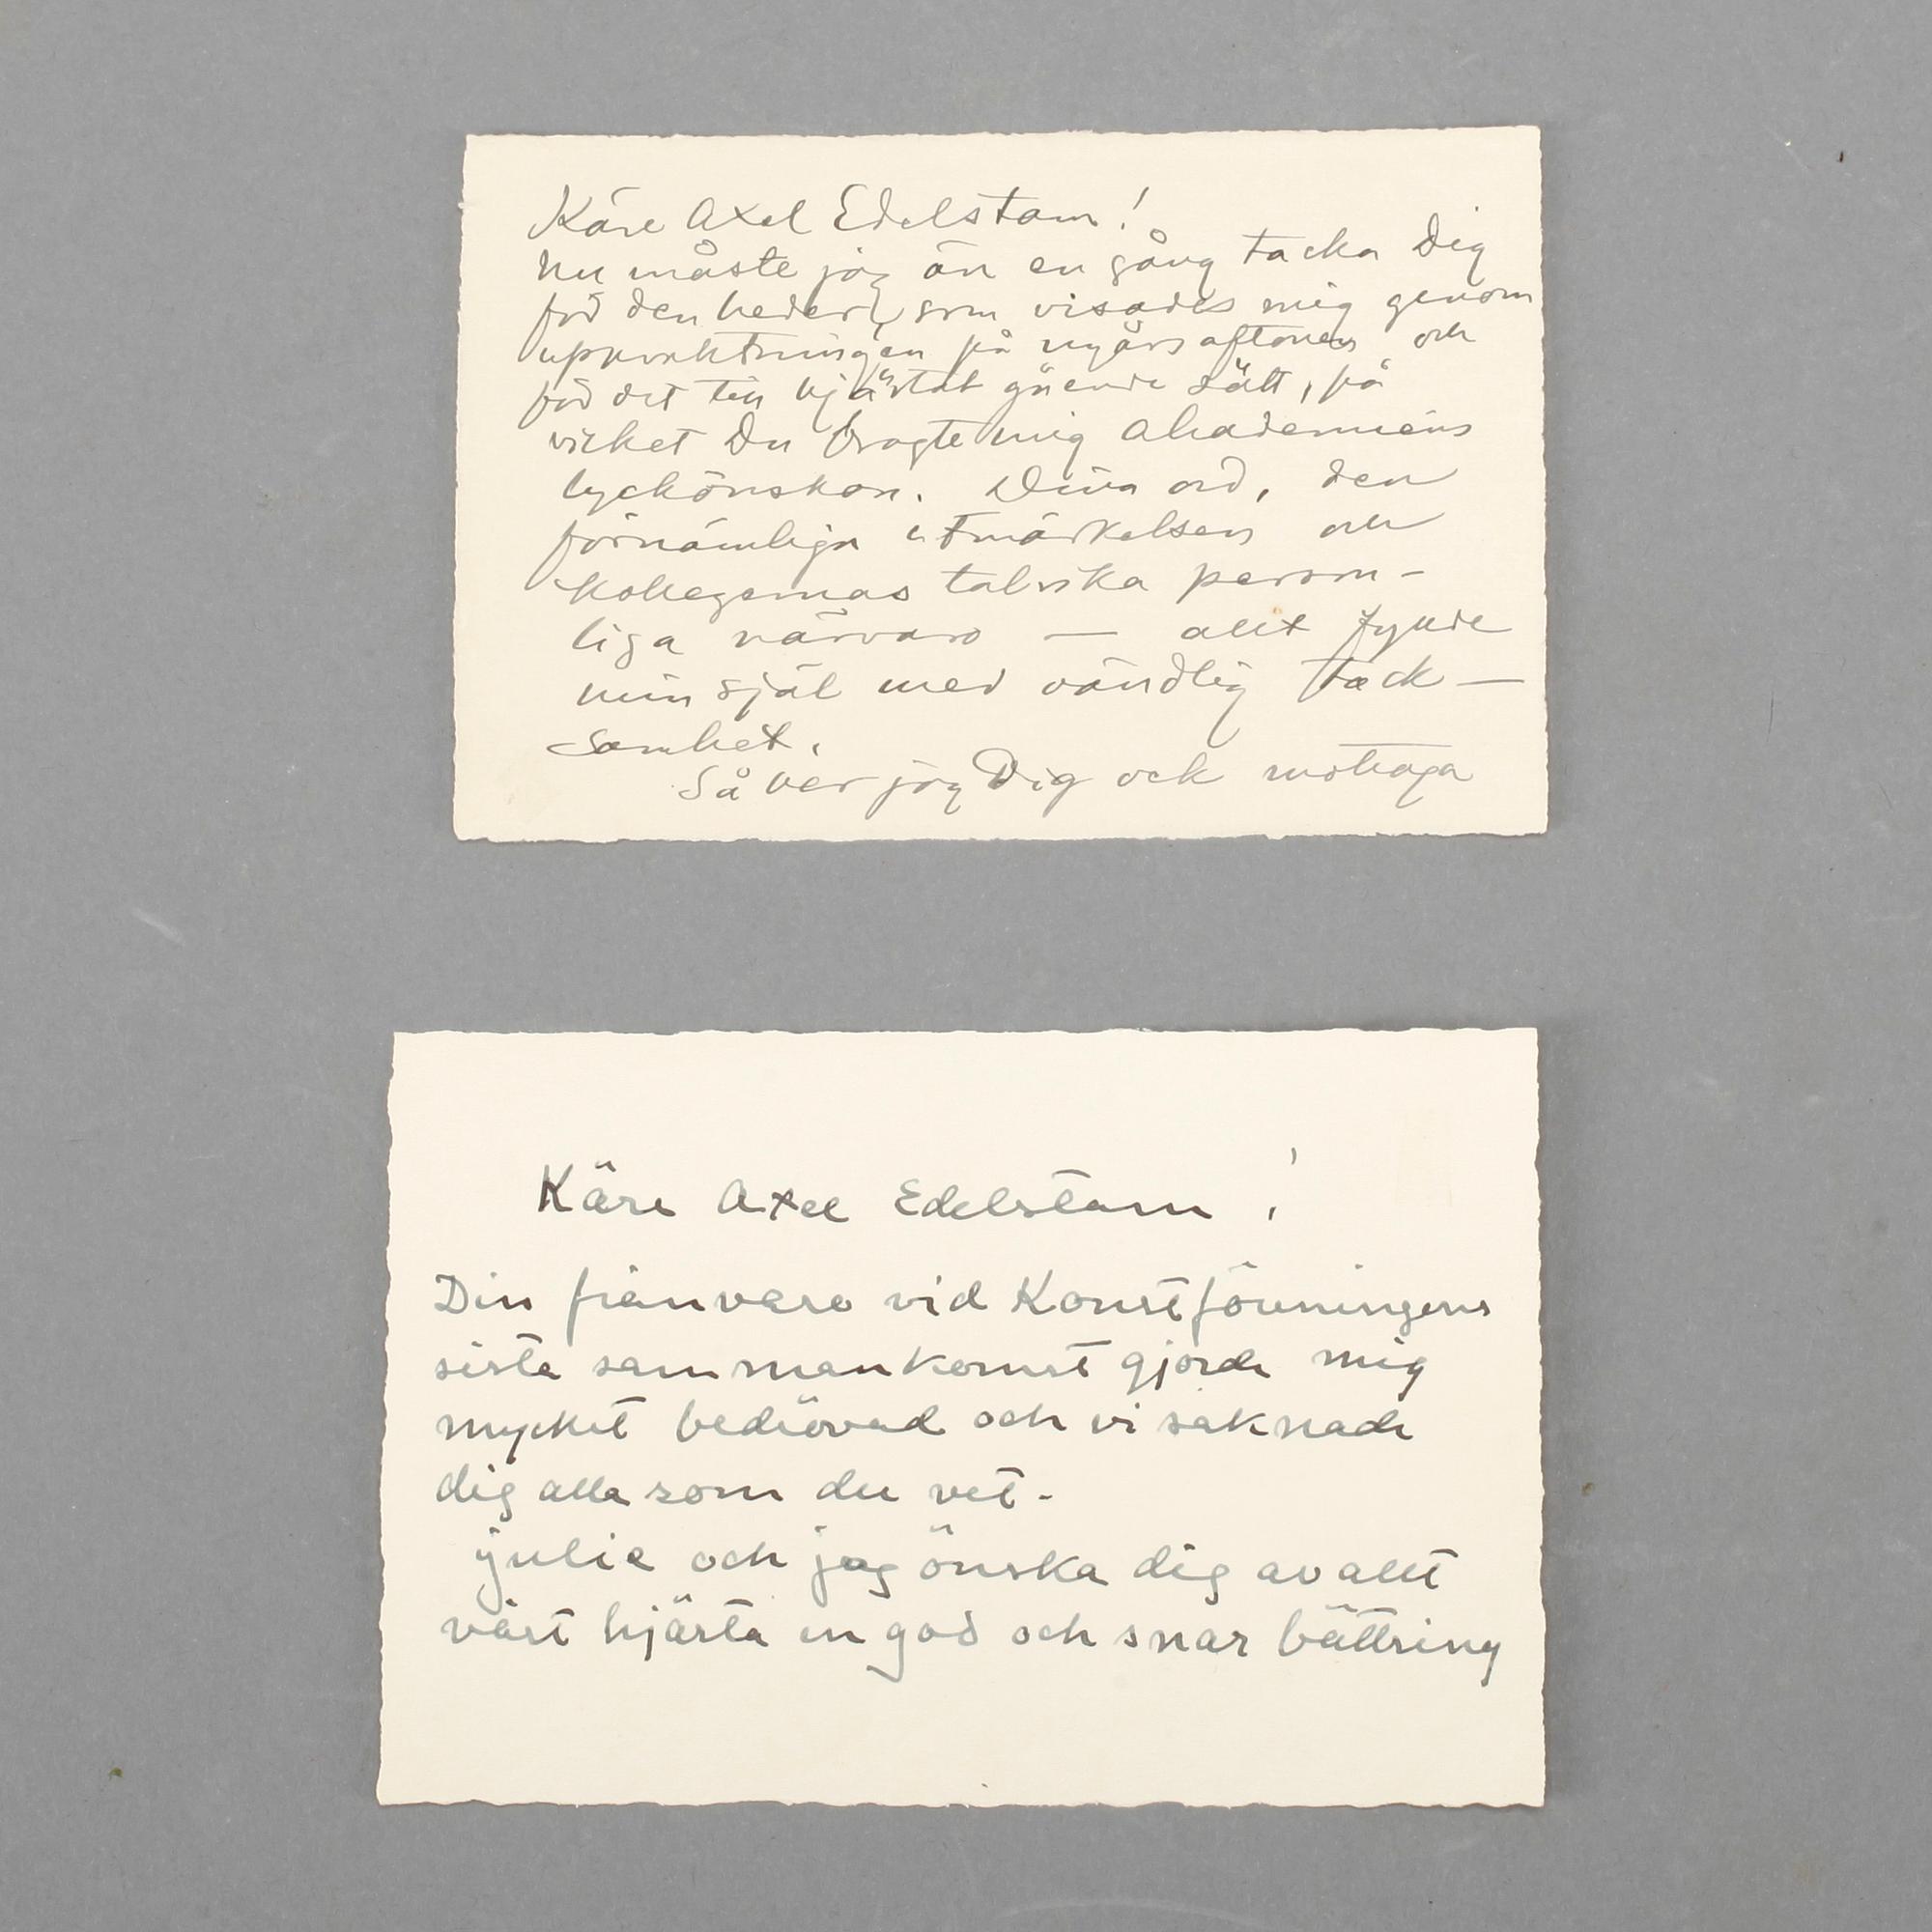 Käre Axel Edelstam!
Nu måste jag än en gång tacka Dig
för den heder, som visades mig genom
uppvaktningen på nyårsaftonen och
för det till hjärtat gående sätt, på
vilket Du bragte mig Akademiens
lyckönskan. Dina ord, den
förnämliga utmärkelsen och
kollegernas talrika person-
liga närvaro — allt fyllde
min själ med oändlig tack-
samhet.
Så ber jag Dig ock mottaga
Käre Axel Edelstam!
Din frånvaro vid Konstföreningens
sista sammankomst gjorde mig
mycket bedrövad och vi saknade
dig alla som du vet.
Julie och jag önska dig av allt
vårt hjärta en god och snar bättring